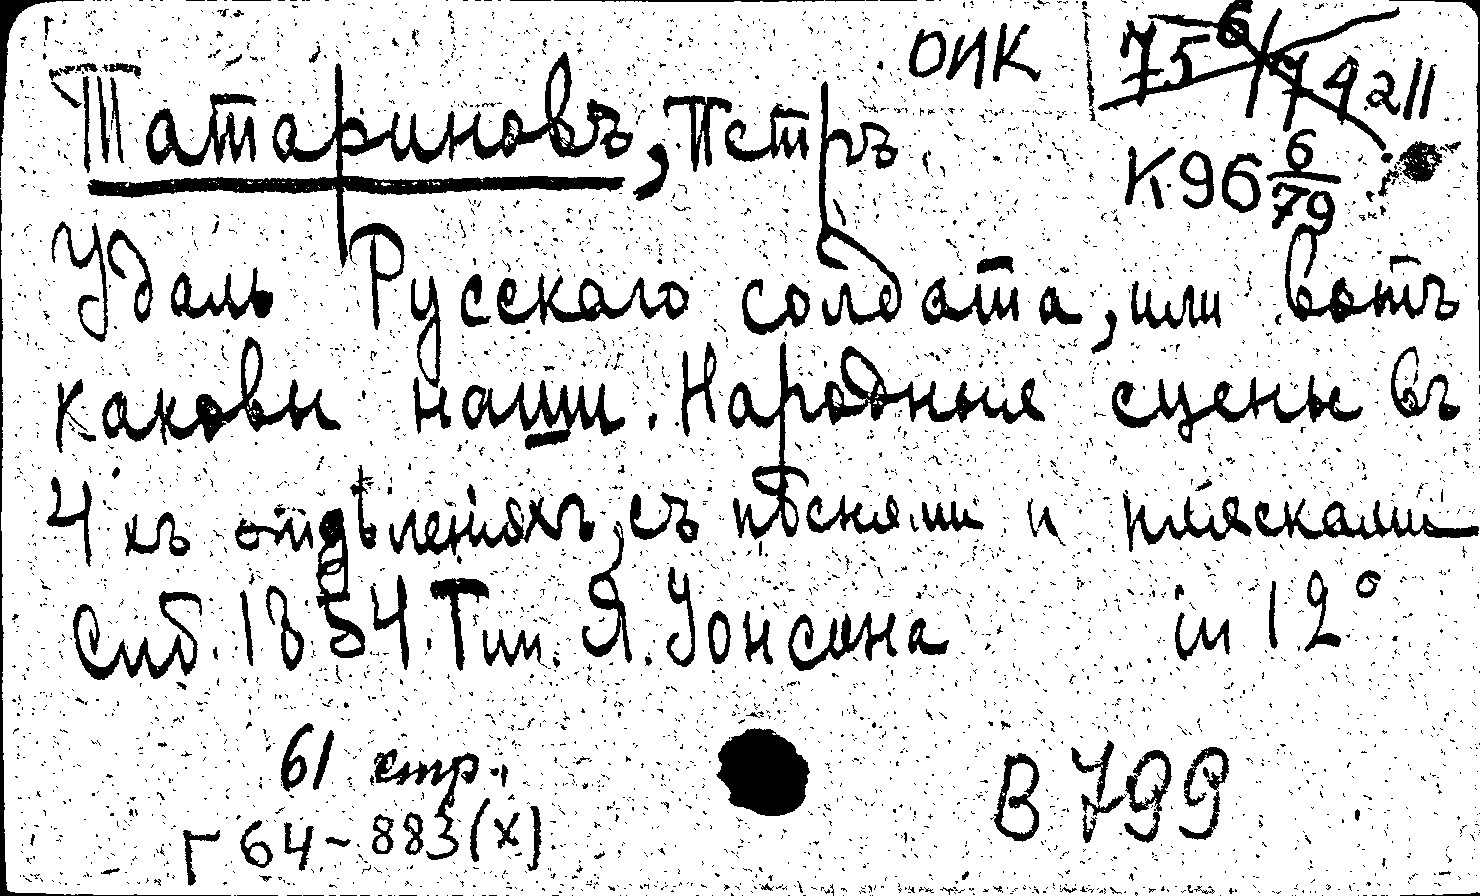 ОИК 75 6/74 211
Татариновъ, Петръ
К96 6/79
Удаль Русскаго солдата, или вотъ
каковы наши. Народныя сцены въ
4 хъ отдѣленіяхъ, съ пѣснями и плясками
Спб. 1854. Тип. Я. Іонсона in 12°
61 стр.
В 799
Г 64-883(x)